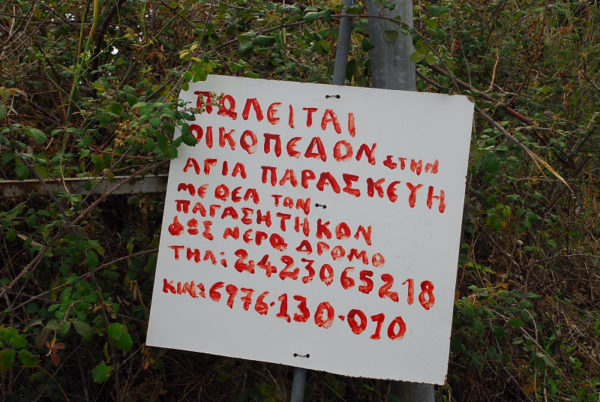 ΠΩΛΕΙΤΑΙ
ΟΙΚΟΠΕΔΟΝ ΣΤΗΝ
ΑΓΙΑ ΠΑΡΑΣΚΕΥΗ
ΜΕ ΘΕΑ ΤΟΝ
ΠΑΓΑΣΗΤΗΚΟΝ
ΦΩΣ ΝΕΡΩ ΔΡΟΜΟ
ΤΗΛ: 2423065218
ΚΙΝ: 6976-130-010